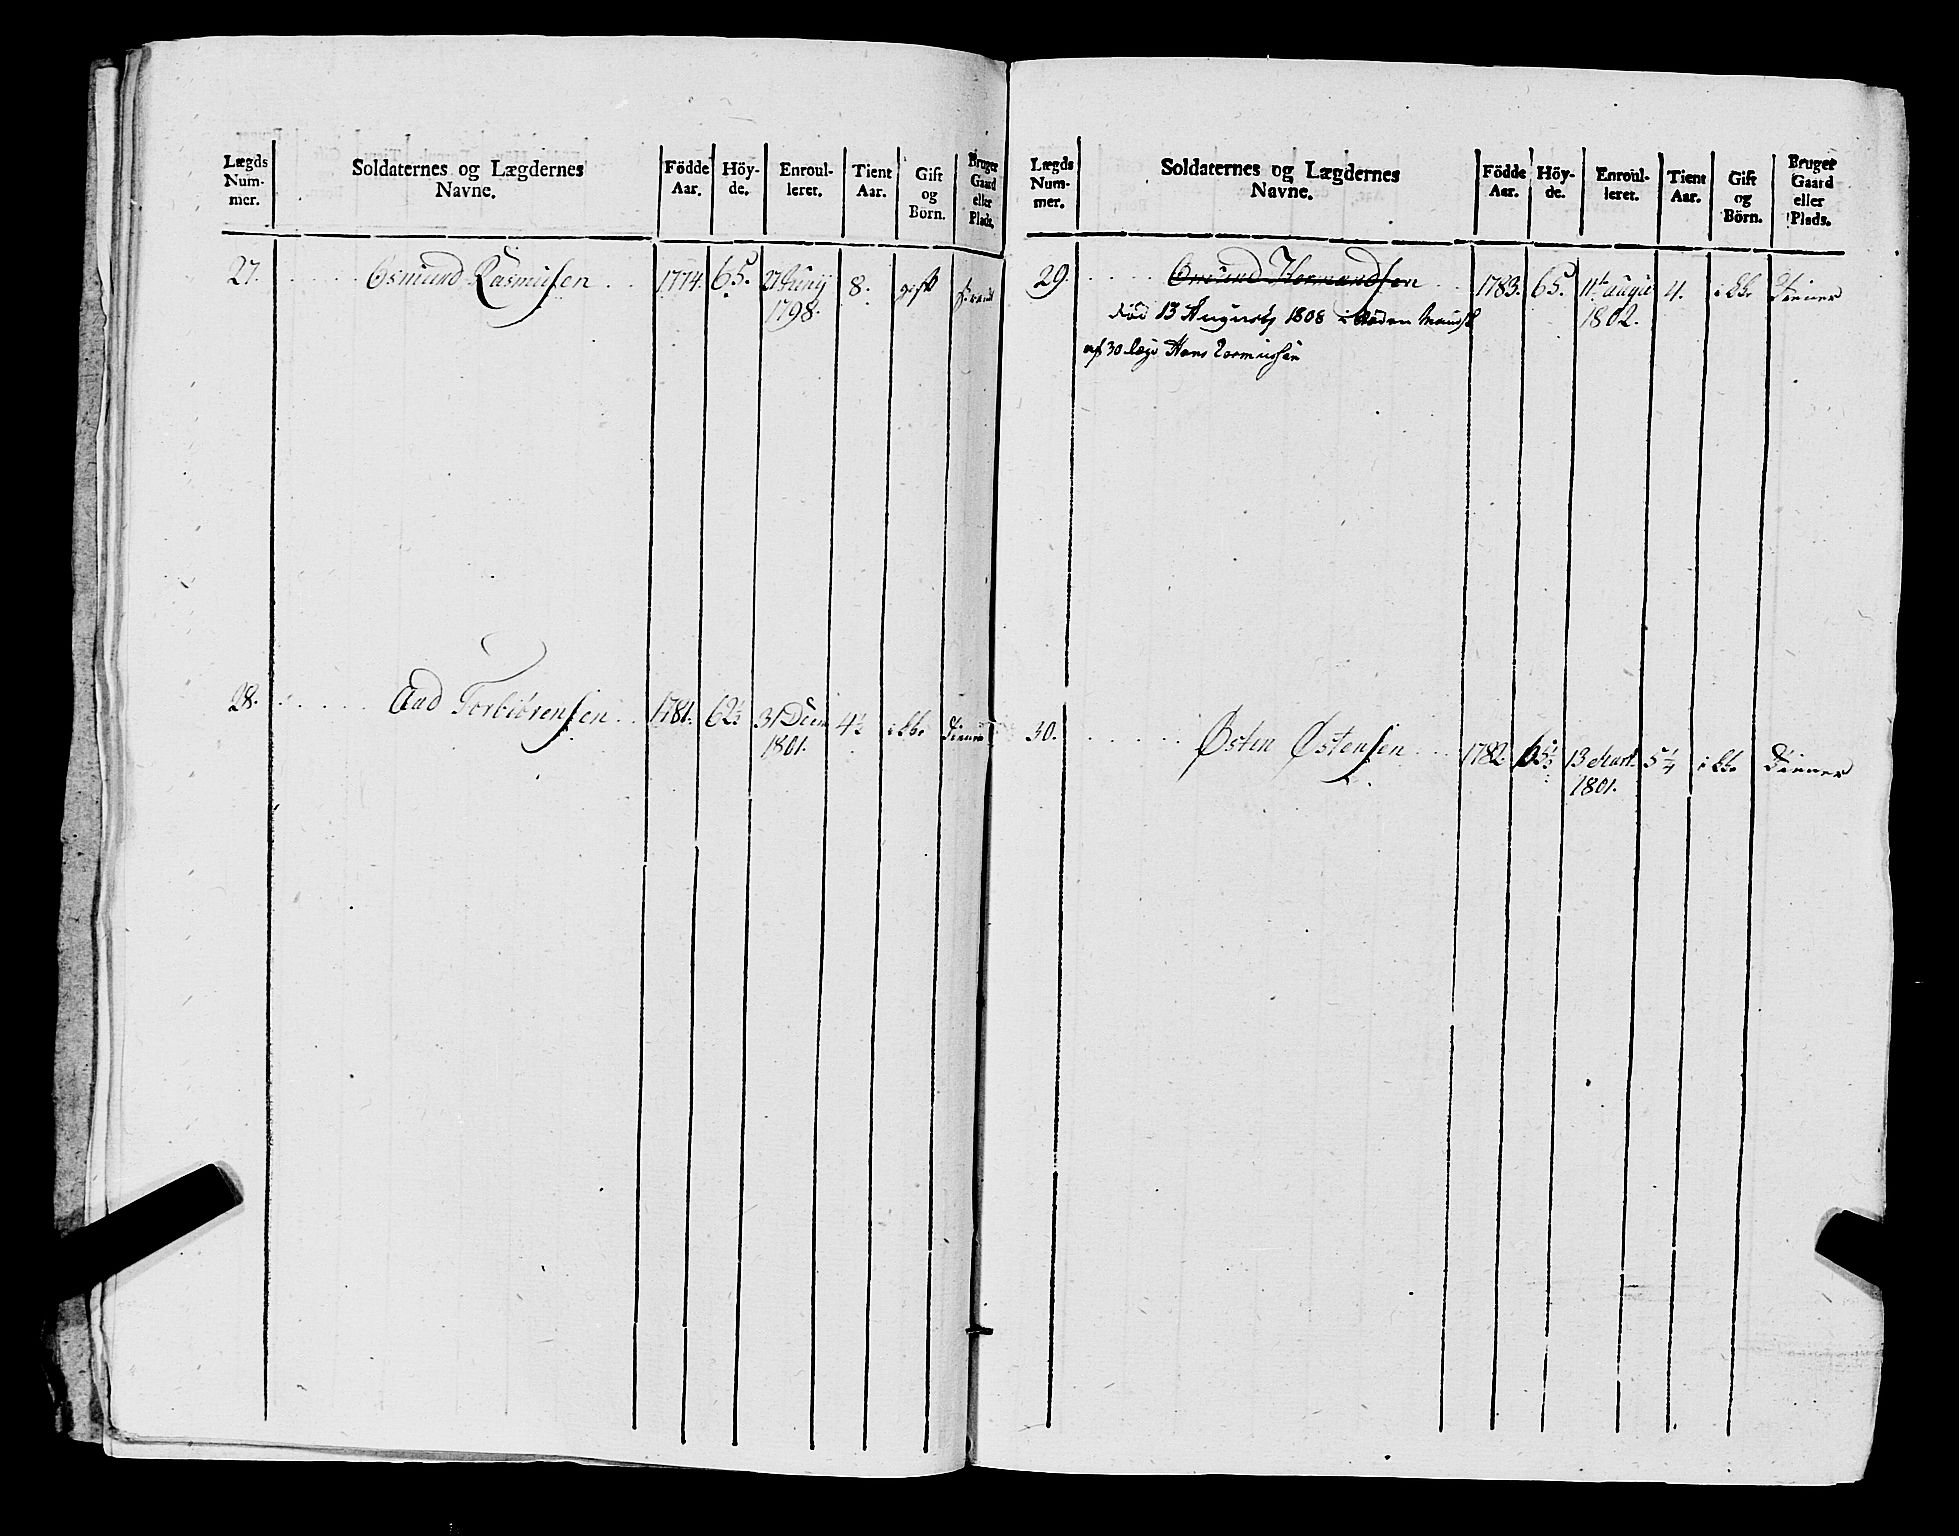 Lægds Num- mer.
Soldaternes og Lægdernes Navne.
Födde Aar.
Höy- de.
Enroul- leret.
Tient Aar.
Gift og Börn.
Bruger Gaard eller Plads.
27. Osmund Rasmusen 1774. 65. 27 Junij 8. gift
1798.
28. Aad Torbiörensen 1781. 62½ 31 Decem 4½ ikke tiener
1801.
Lægds Num- mer.
Soldaternes og Lægdernes Navne.
Födde Aar.
Höy- de.
Enroul- leret.
Tient Aar.
Gift og Börn.
Bruger Gaard eller Plads.
29. Omund 1783. 65. 11te augu 4. ikke tiener
död 13 Augusty 1808 1802.
af 30 læg Hans
30. Østen Østensen 1782. 65½ 13 Mart. 5¼ ikke tiener
1801.